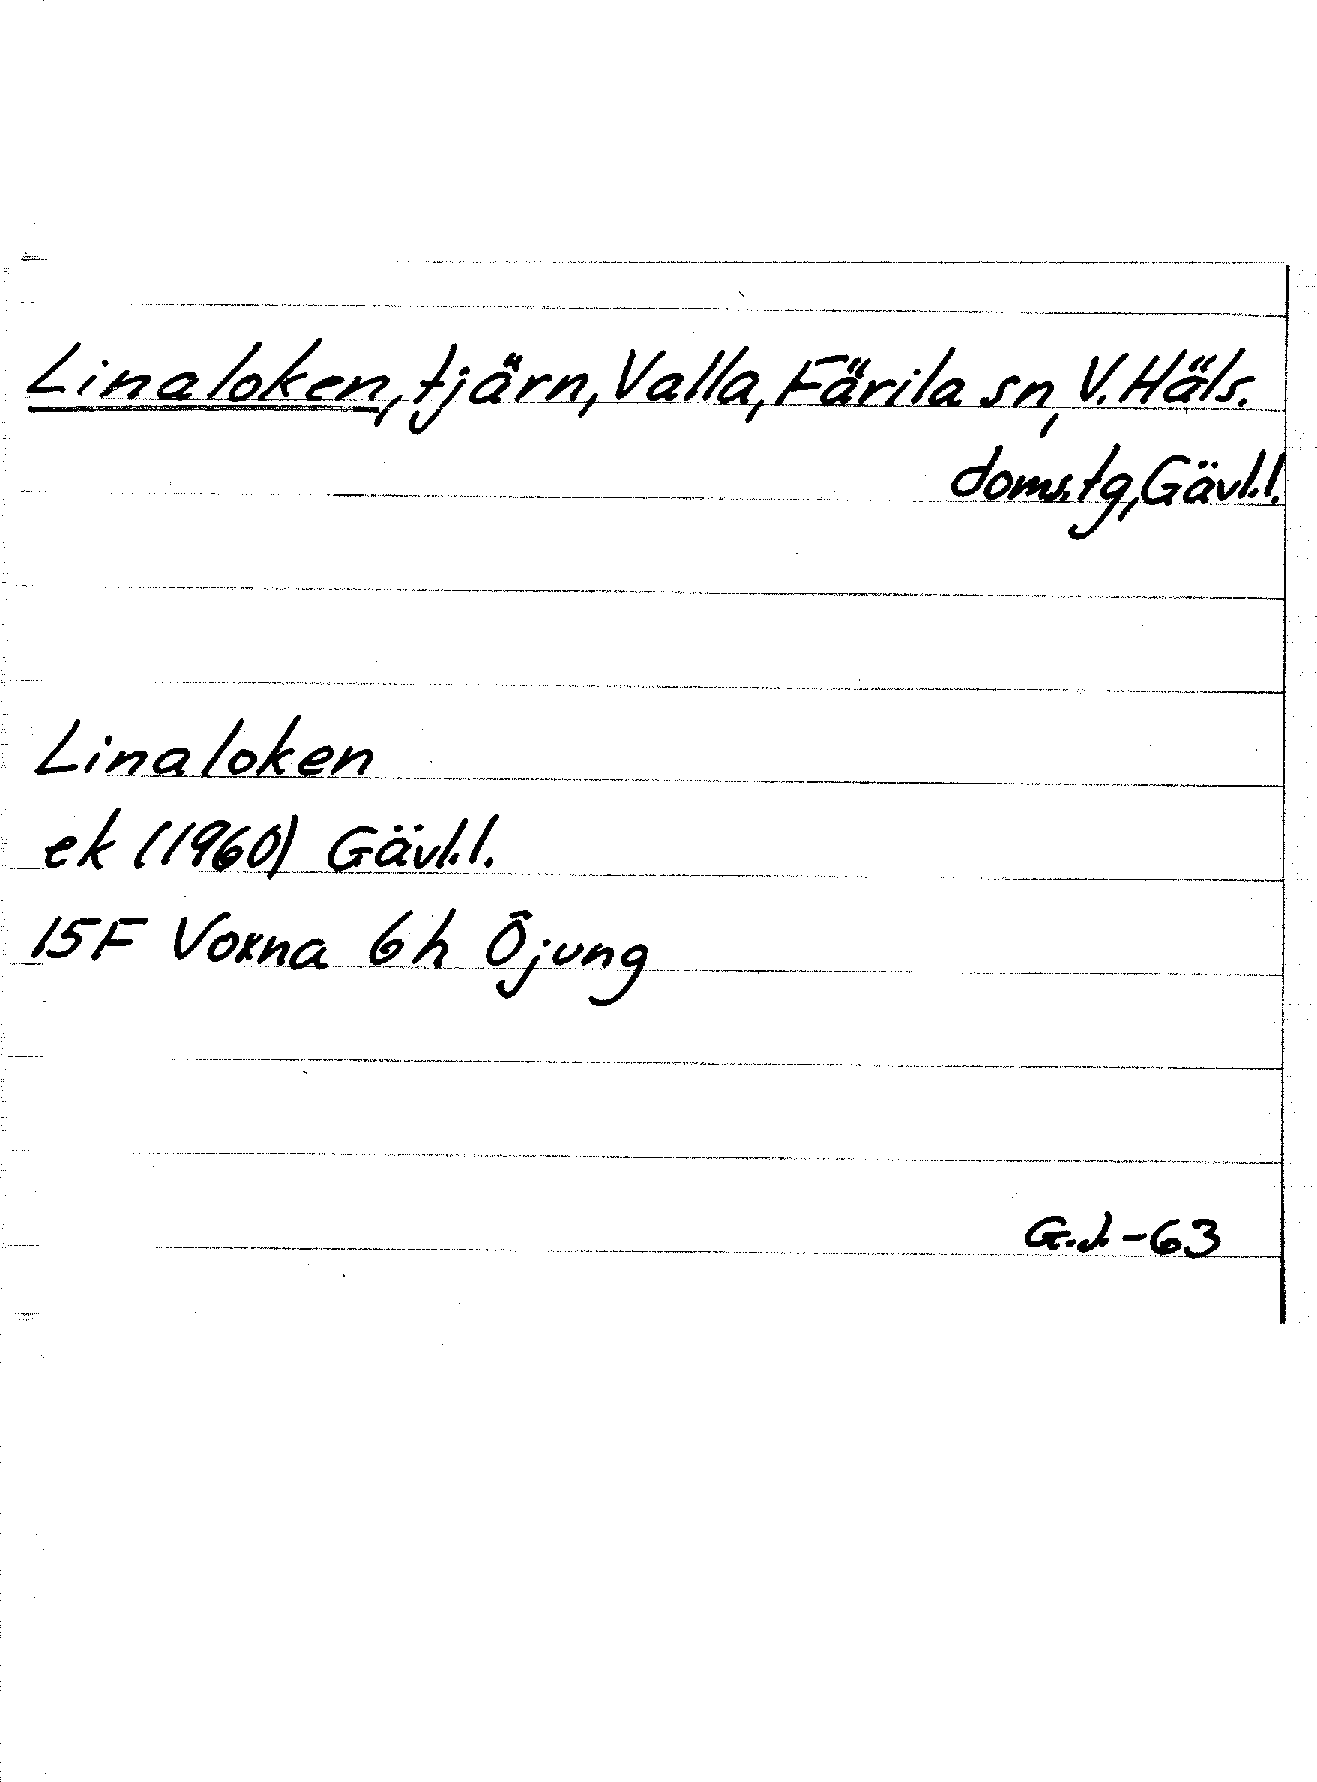 Linaloken, tjärn, Valla, Färila sn, V. Häls.
doms.tg, Gävl.l.
Linaloken
ek (1960) Gävl.l.
15F Voxna 6h Öjung
G.J.-63